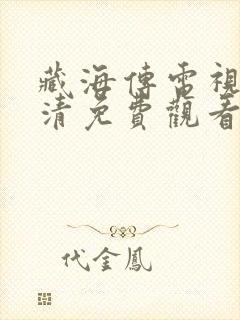 藏海傳電視
清免費觀看
代金鳳